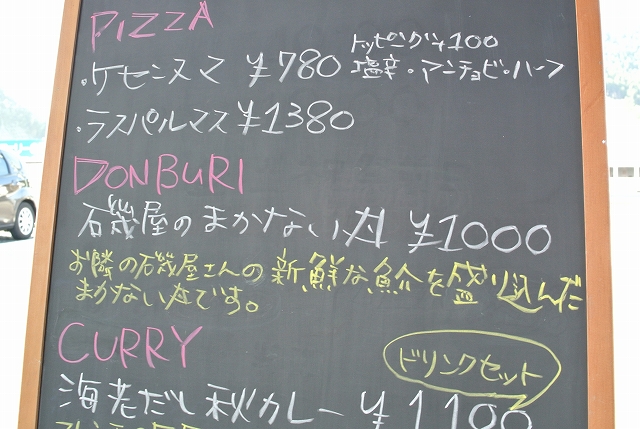 PIZZA
・ケセンヌマ ¥780
トッピング+100
塩辛・アンチョビ・ハーフ
・ラスパルマス ¥1380
DONBURI
石幾屋のまかない丼 ¥1000
お隣の石幾屋さんの新鮮な魚介を盛り込んだ
まかない丼です。
CURRY
ドリンクセット
海老だし秋カレー ¥1100